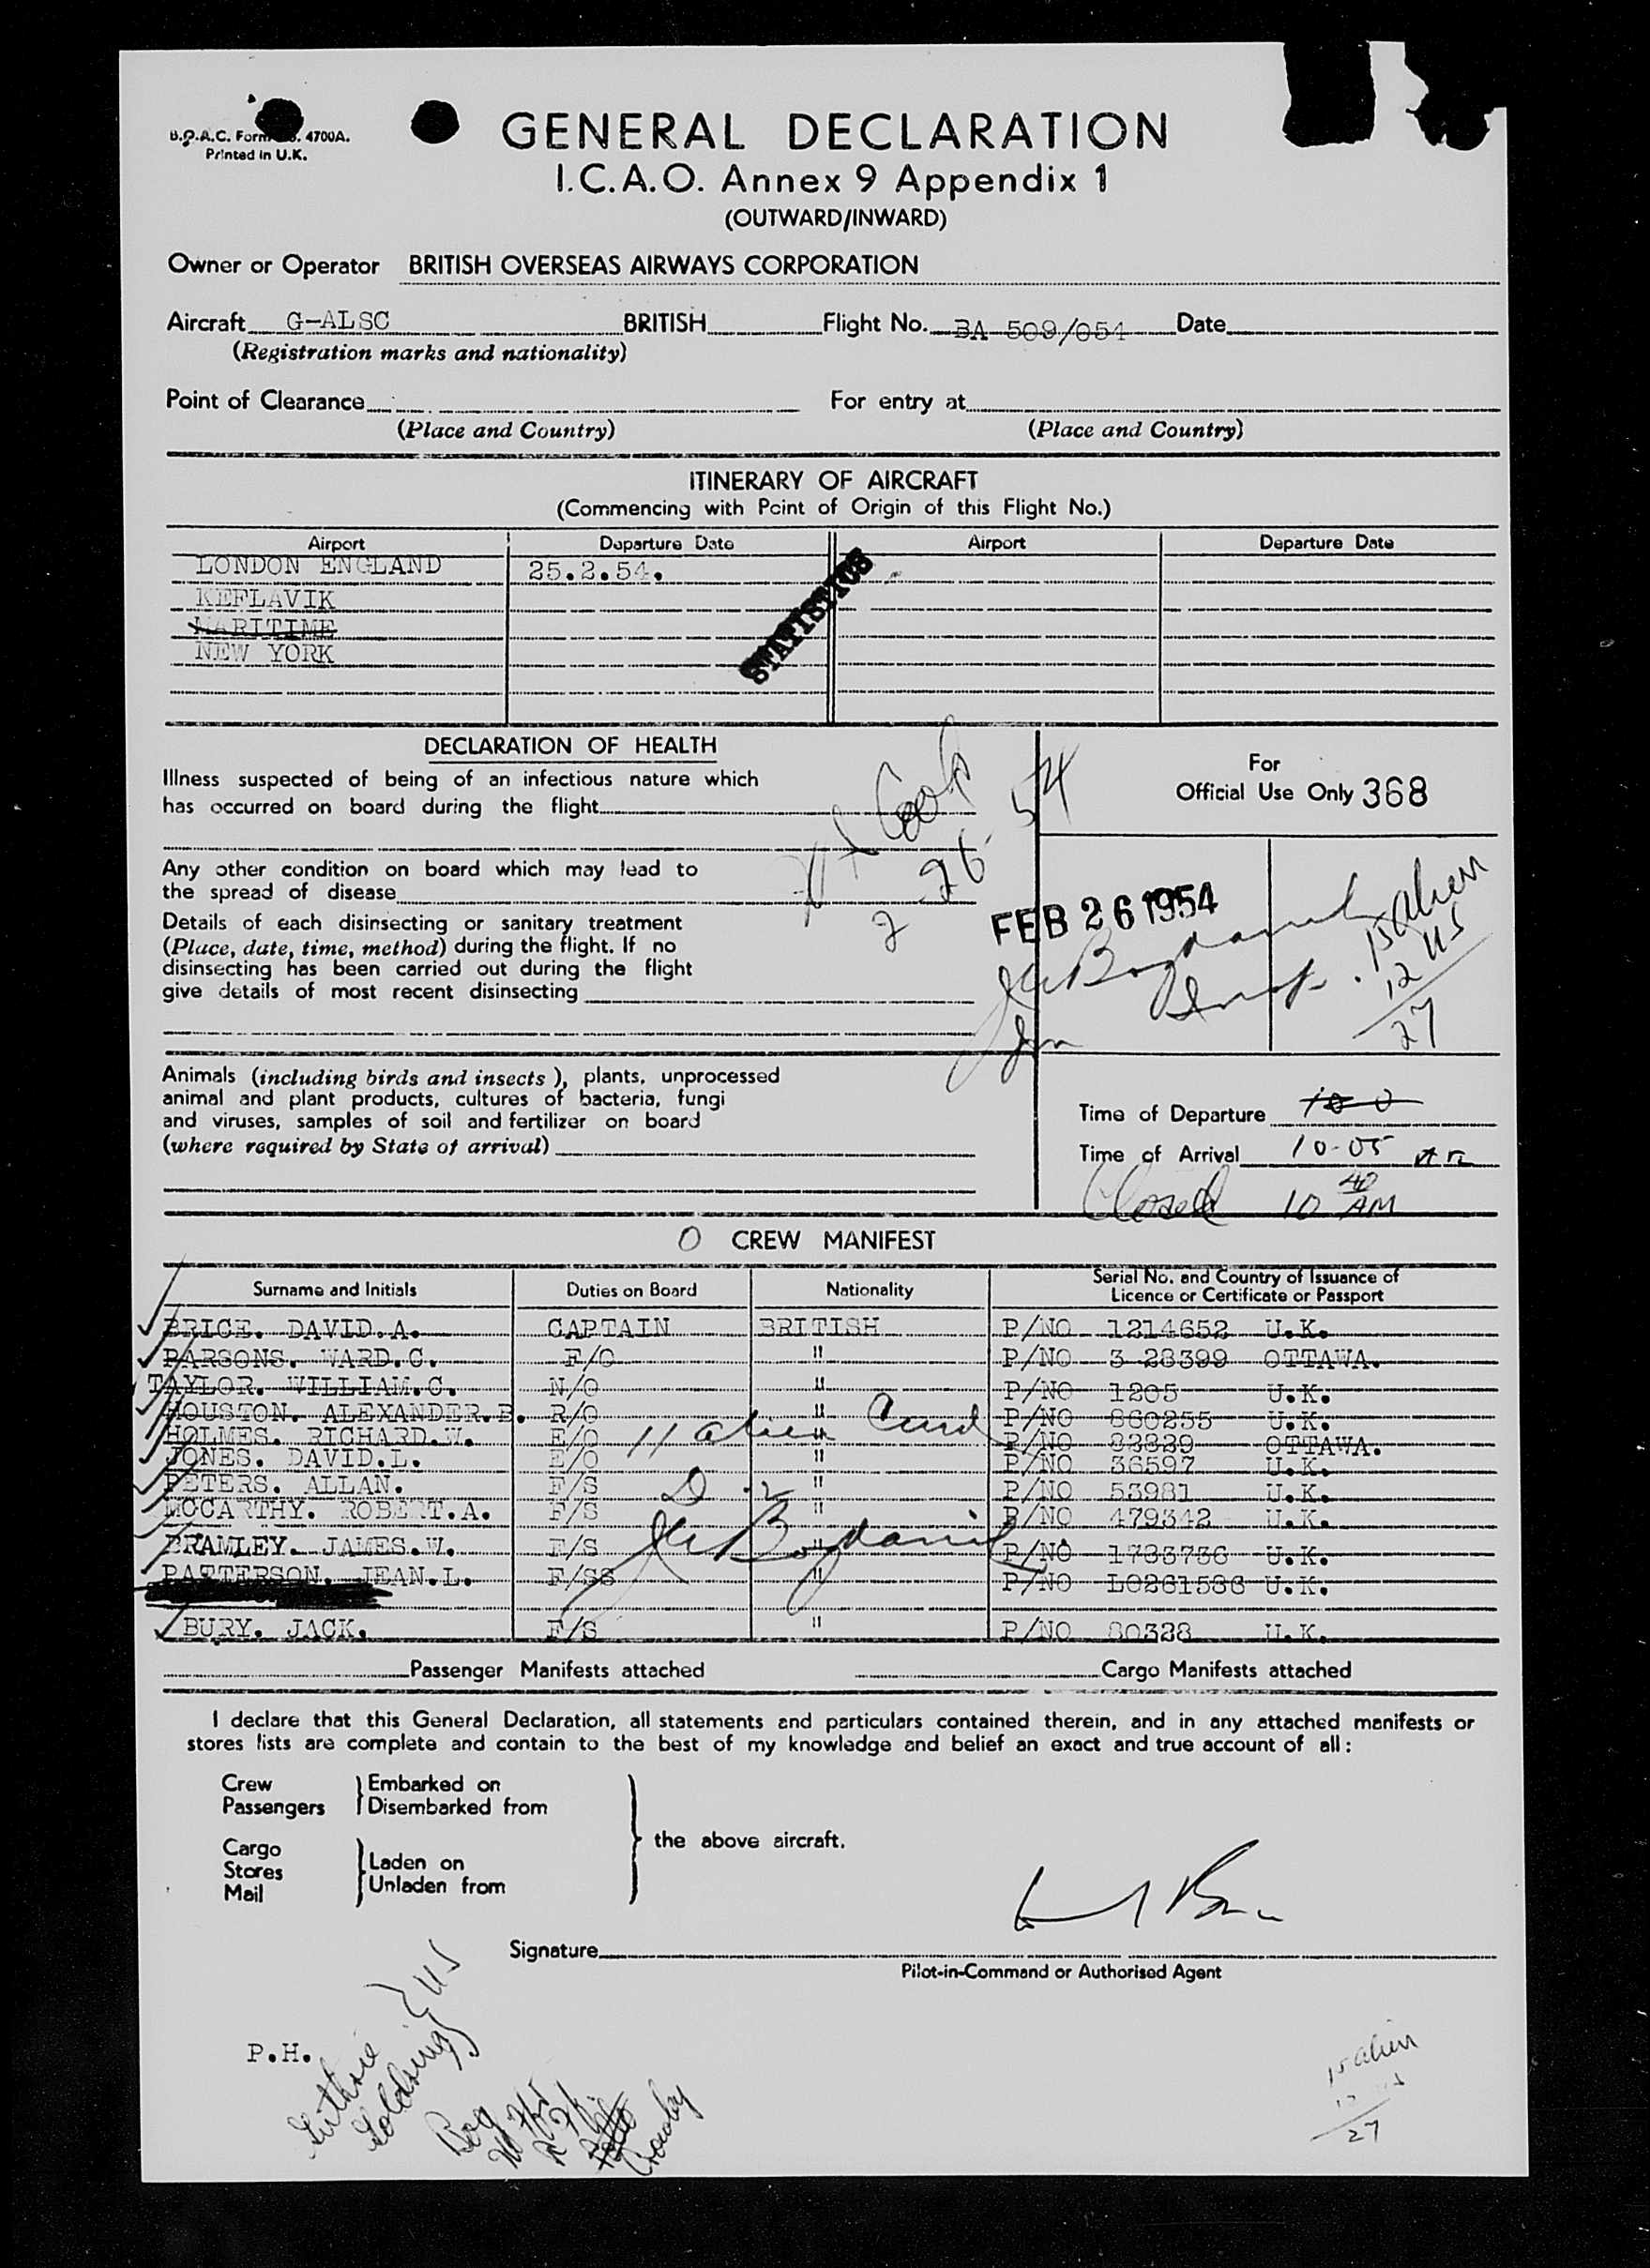 B.O.A.C. Form 4700A.
Printed in U.K.
GENERAL DECLARATION
I.C.A.O. Annex 9 Appendix 1
(OUTWARD/INWARD)
Owner or Operator BRITISH OVERSEAS AIRWAYS CORPORATION
Aircraft G-ALSC BRITISH Flight No. BA 509/054 Date
(Registration marks and nationality)
Point of Clearance For entry at
(Place and Country) (Place and Country)
ITINERARY OF AIRCRAFT
(Commencing with Point of Origin of this Flight No.)
Airport Departure Date Airport Departure Date
LONDON ENGLAND 25.2.54.
KEFLAVIK
MARITIME
NEW YORK
STATISTICS
DECLARATION OF HEALTH
Illness suspected of being of an infectious nature which
has occurred on board during the flight
Any other condition on board which may lead to
the spread of disease
Details of each disinsecting or sanitary treatment
(Place, date, time, method) during the flight. If no
disinsecting has been carried out during the flight
give details of most recent disinsecting
Cook
2-26-54
For
Official Use Only 368
FEB 26 1954
15 alien
12 US
27
Animals (including birds and insects), plants, unprocessed
animal and plant products, cultures of bacteria, fungi
and viruses, samples of soil and fertilizer on board
(where required by State of arrival)
Time of Departure
Time of Arrival 10-05
Closed 10 40 AM
0 CREW MANIFEST
Surname and Initials Duties on Board Nationality Serial No. and Country of Issuance of
Licence or Certificate or Passport
BRICE. DAVID.A. CAPTAIN BRITISH P/NO 1214652 U.K.
PARSONS. WARD.C. F/O " P/NO 3-28399 OTTAWA.
TAYLOR. WILLIAM.C. N/O " P/NO 1205 U.K.
HOUSTON. ALEXANDER.B. R/O " P/NO 860255 U.K.
HOLMES. RICHARD.W. E/O " P/NO 83839 OTTAWA.
JONES. DAVID.L. E/O " P/NO 36597 U.K.
PETERS. ALLAN. F/S " P/NO 53981 U.K.
MCCARTHY. ROBERT.A. F/S " P/NO 479342 U.K.
BRAMLEY. JAMES.W. F/S " P/NO 1733736 U.K.
PATTERSON. JEAN.L. F/SS " P/NO L0261536 U.K.
BURY. JACK. F/S " P/NO 80328 U.K.
11 alien
Passenger Manifests attached Cargo Manifests attached
I declare that this General Declaration, all statements and particulars contained therein, and in any attached manifests or
stores lists are complete and contain to the best of my knowledge and belief an exact and true account of all:
Crew Embarked on
Passengers Disembarked from
the above aircraft.
Cargo
Stores Laden on
Mail Unladen from
Signature
Pilot-in-Command or Authorised Agent
P.H.
Guthrie
US
Crowley
15 alien
27